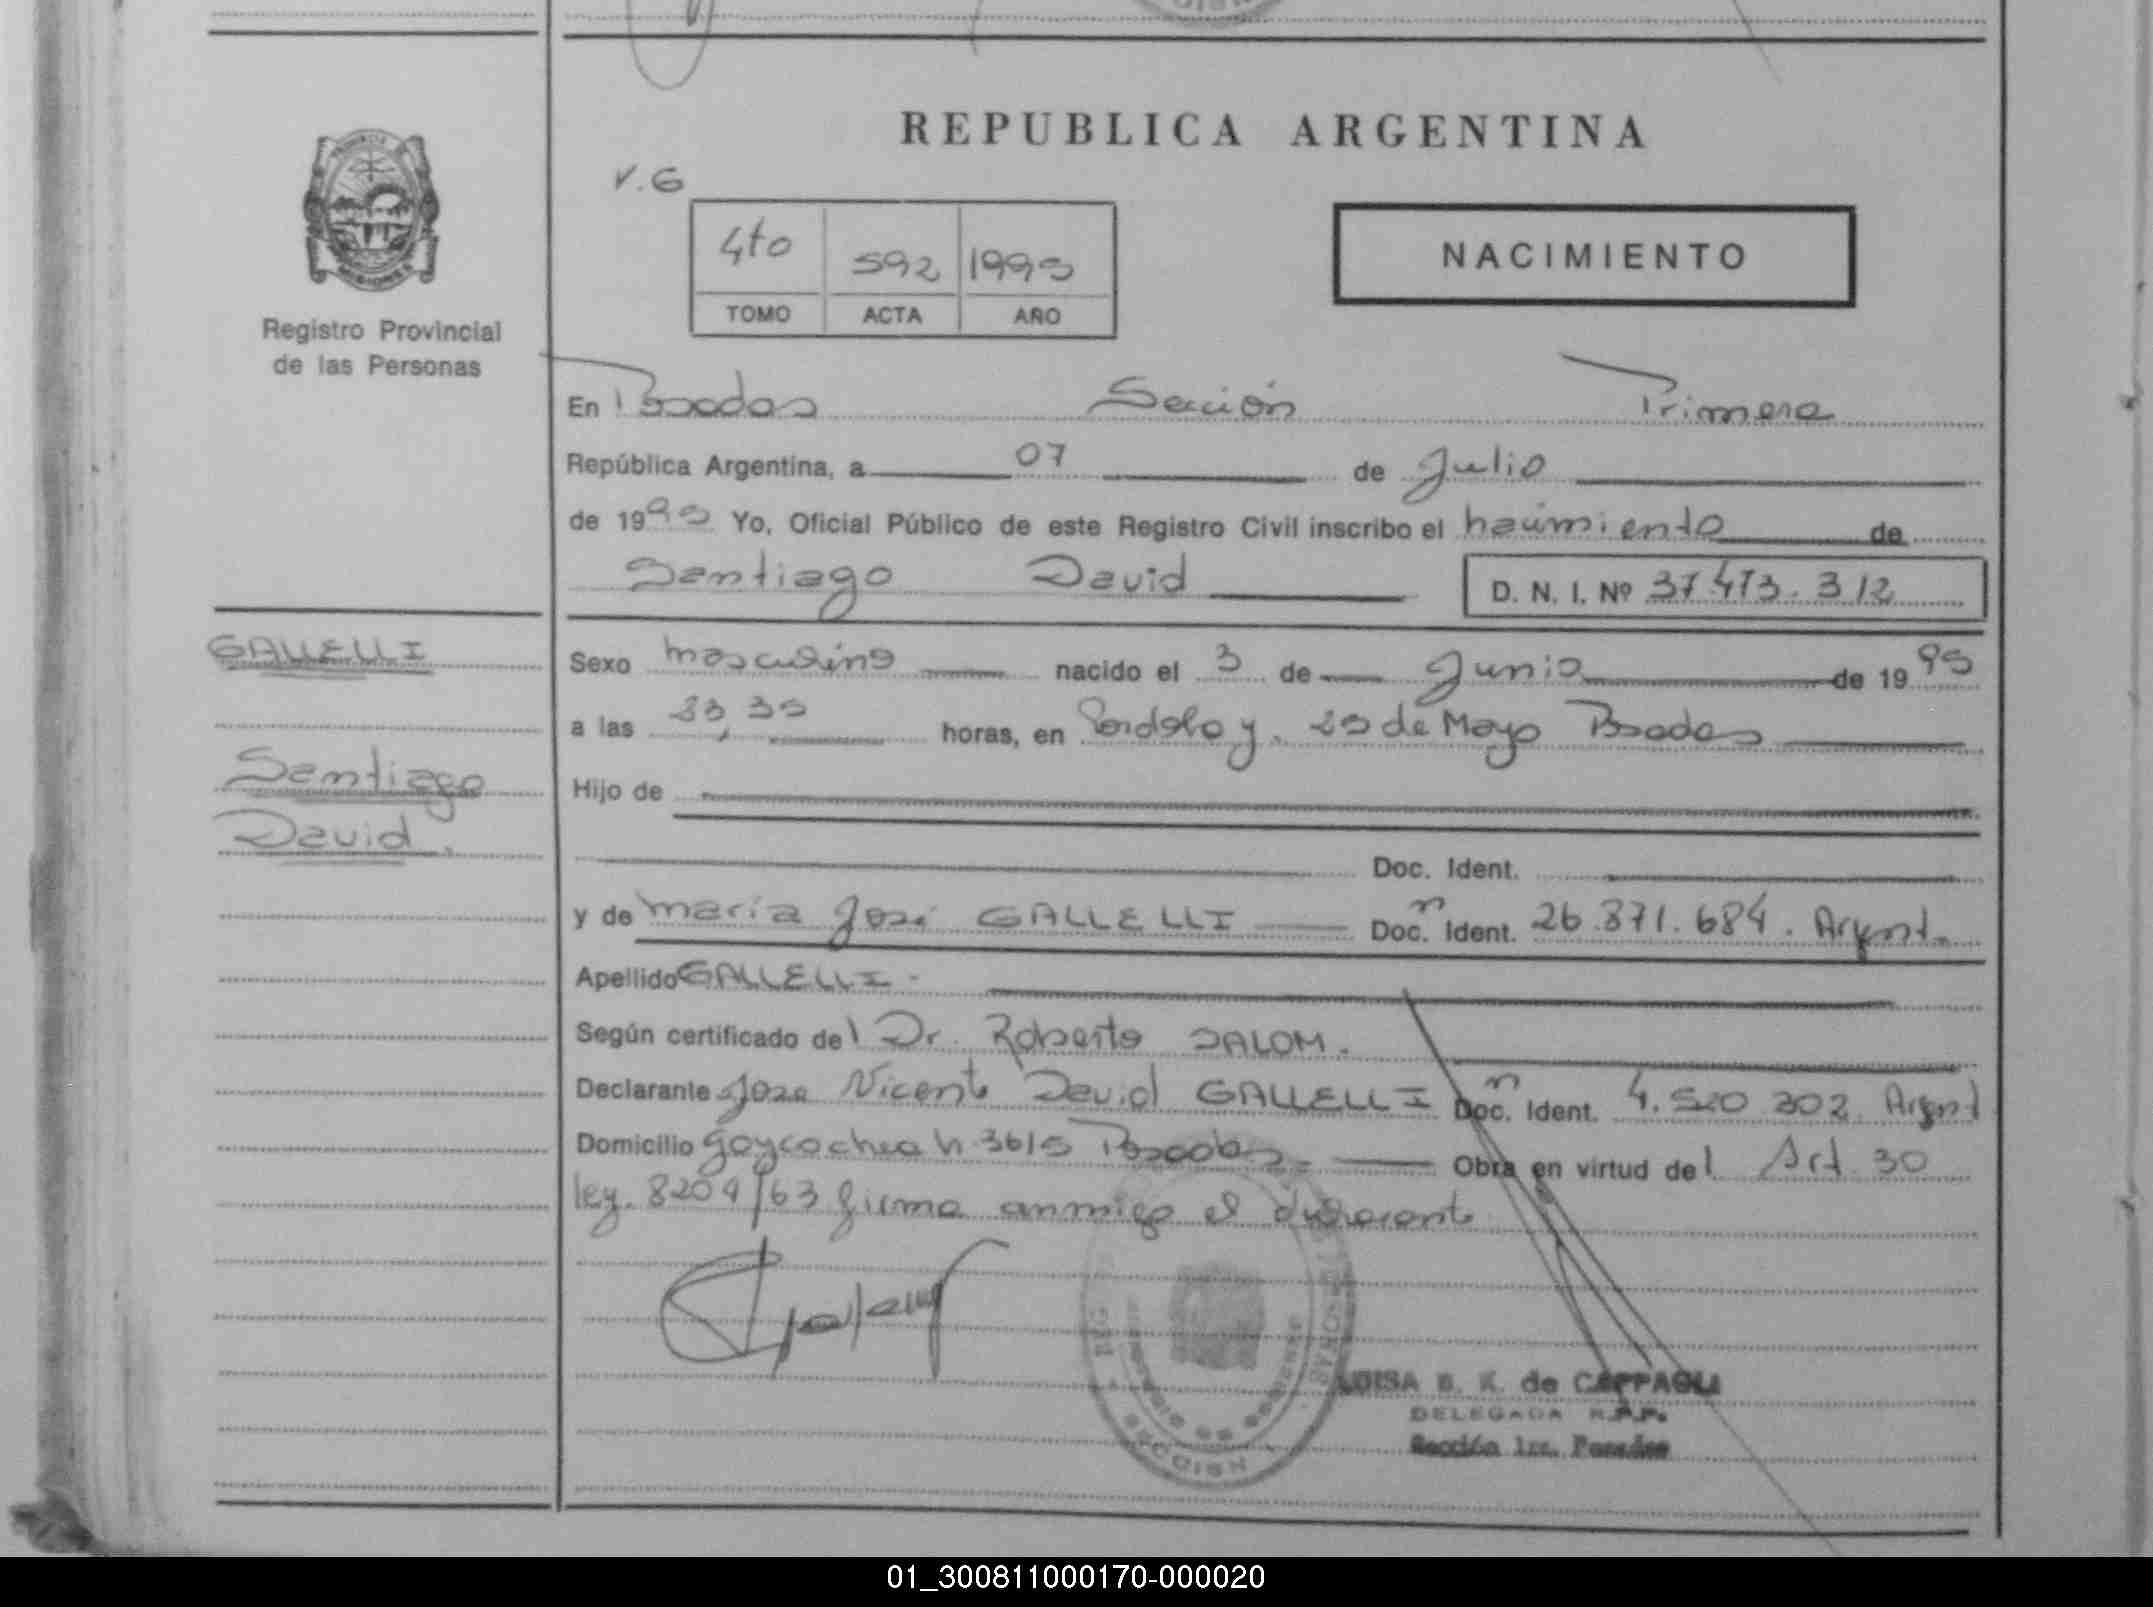 REPUBLICA ARGENTINA
V.G
4to 592 1995
TOMO ACTA AÑO
NACIMIENTO
Registro Provincial
de las Personas
En Posadas Sección Primera
República Argentina, a 07 de Julio
de 1995 Yo, Oficial Público de este Registro Civil inscribo el nacimiento de
Santiago David D. N. I. Nº 37.473.312
GALLELLI
Santiago
David.
Sexo masculino nacido el 3 de Junio de 1995
a las 23,35 horas, en y 25 de Mayo Posadas
Hijo de
Doc. Ident.
y de maría José GALLELLI Doc. Ident. 26.871.684. Argent.
Apellido GALLELLI.
Según certificado del Dr. Roberto JALOM.
Declarante Jose Vicente David GALLELLI Doc. Ident. 4.520.302 Argent
Domicilio Goycochea n 3615 Posadas. Obra en virtud del Art 30
ley. 8204/63 firma conmigo el declarante
LUISA B. K. de CAPPAGLI
DELEGADA R.P.P.
Sección 1ra. Posadas
01_300811000170-000020